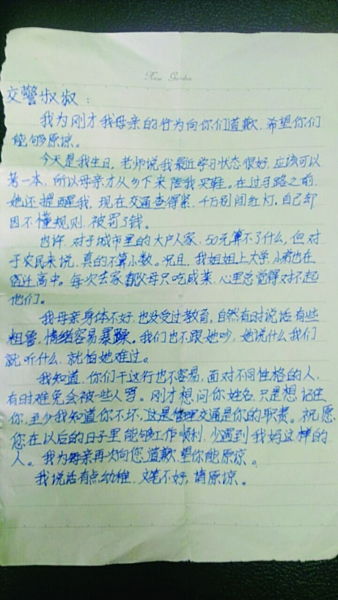 Rose Garden
交警叔叔：
我为刚才我母亲的行为向你们道歉，希望你们
能够原谅。
今天是我生日，老师说我最近学习状态很好，应该可以
第一本，所以母亲才从乡下来陪我买鞋。在过马路之前，
她还提醒我，现在交通查得紧，千万别闯红灯，自己却
因不懂规则，被罚了钱。
也许，对于城市里的大户人家，50元算不了什么，但对
于农民来说，真的不算小数。况且，我姐姐上大学，小弟也在
镇上高中。每次去家都父母只吃咸菜，心里总觉得对不起
他们。
我母亲身体不好，也没受过教育，自然有时说话有些
粗鲁，情绪容易暴躁。我们也不跟她吵，她说什么我们
就听什么，就怕她难过。
我知道，你们干这行也不容易，面对不同性格的人，
有时难免会被些人骂。刚才想问你姓名，只是想记住
你，至少我知道你不坏，这是管理交通是你的职责。祝愿
您在以后的日子里能够工作顺利，少遇到我妈这样的
人。我为母亲再次向您道歉，望你能原谅。
我说话有点幼稚，文笔不好，请原谅。